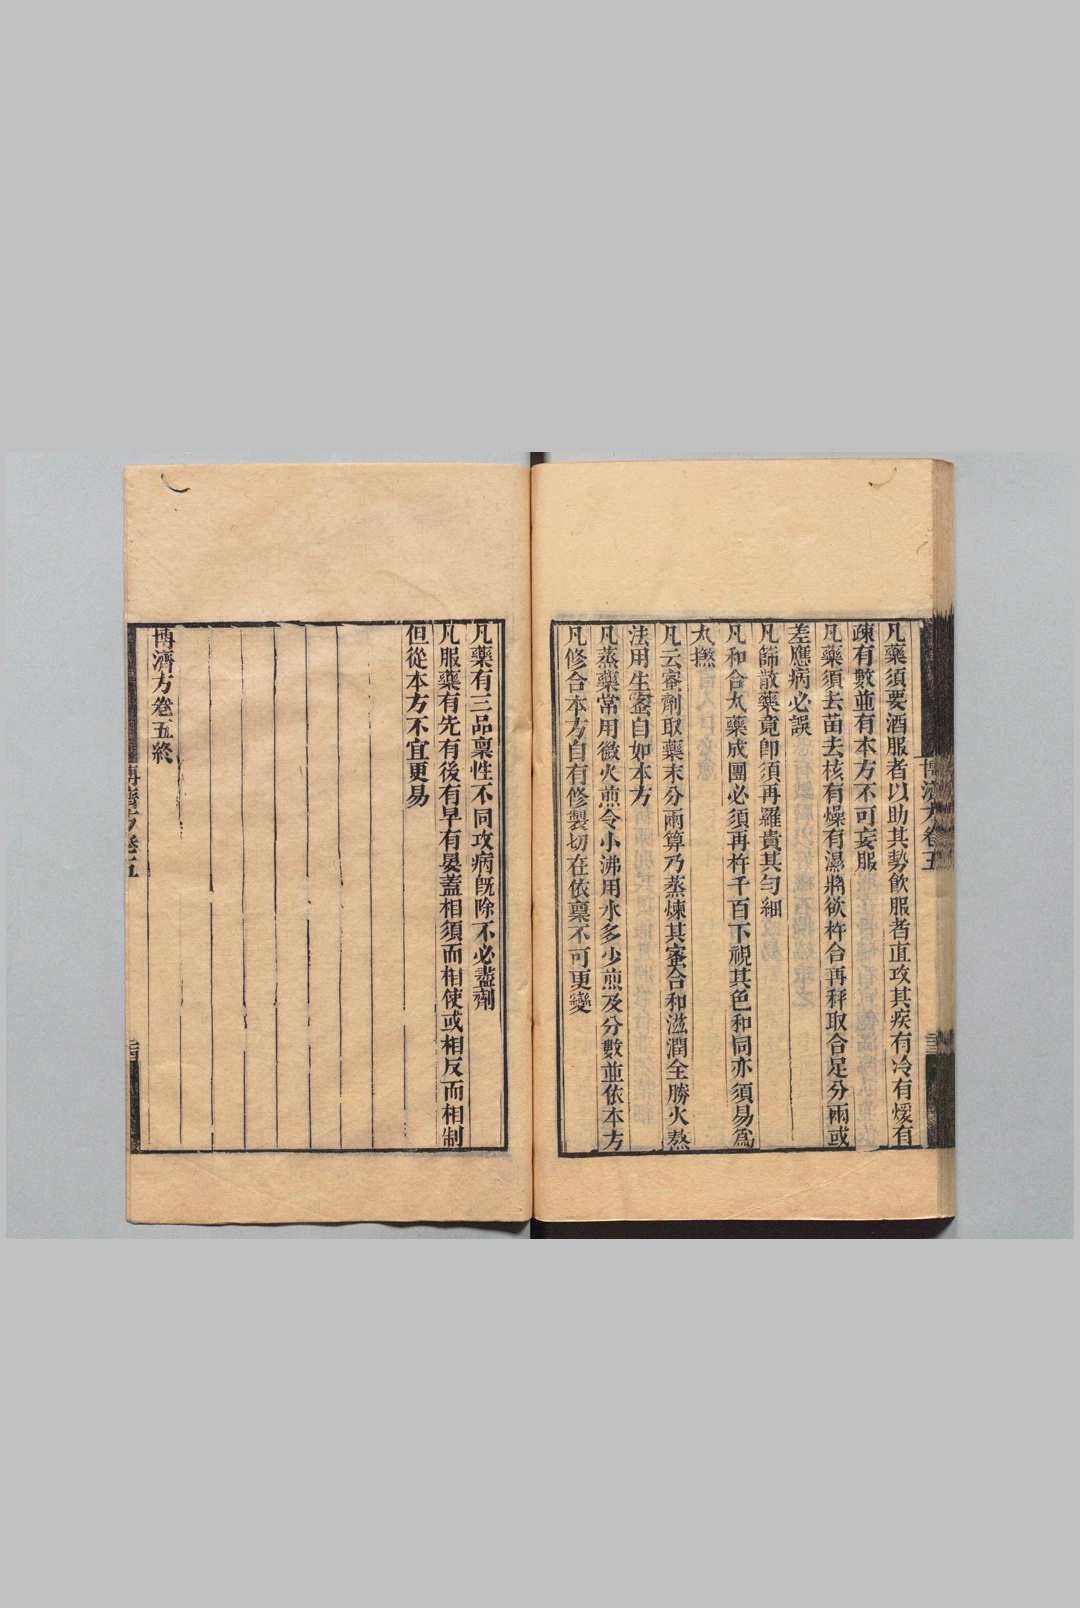 凡藥須要酒服者以助其勢飲服者直攻其疾有冷有煖有
疎有數並有本方不可妄服
凡藥須去苗去核有燥有濕將欲杵合再秤取合足分兩或
差應病必誤
凡篩散藥竟卽須再羅貴其勻細
凡和合丸藥成團必須再杵千百下視其色和同亦須易爲
丸撚
凡云蜜劑取藥末分兩算乃蒸煉其蜜合和滋潤全勝火熬
法用生蜜自如本方
凡蒸藥常用微火煎令小沸用水多少煎及分數並依本方
凡修合本方自有修製切在依稟不可更變
博濟方卷五
凡藥有三品稟性不同攻病旣除不必盡劑
凡服藥有先有後有早有晏蓋相須而相使或相反而相制
但從本方不宜更易
博濟方卷五終
博濟方卷五